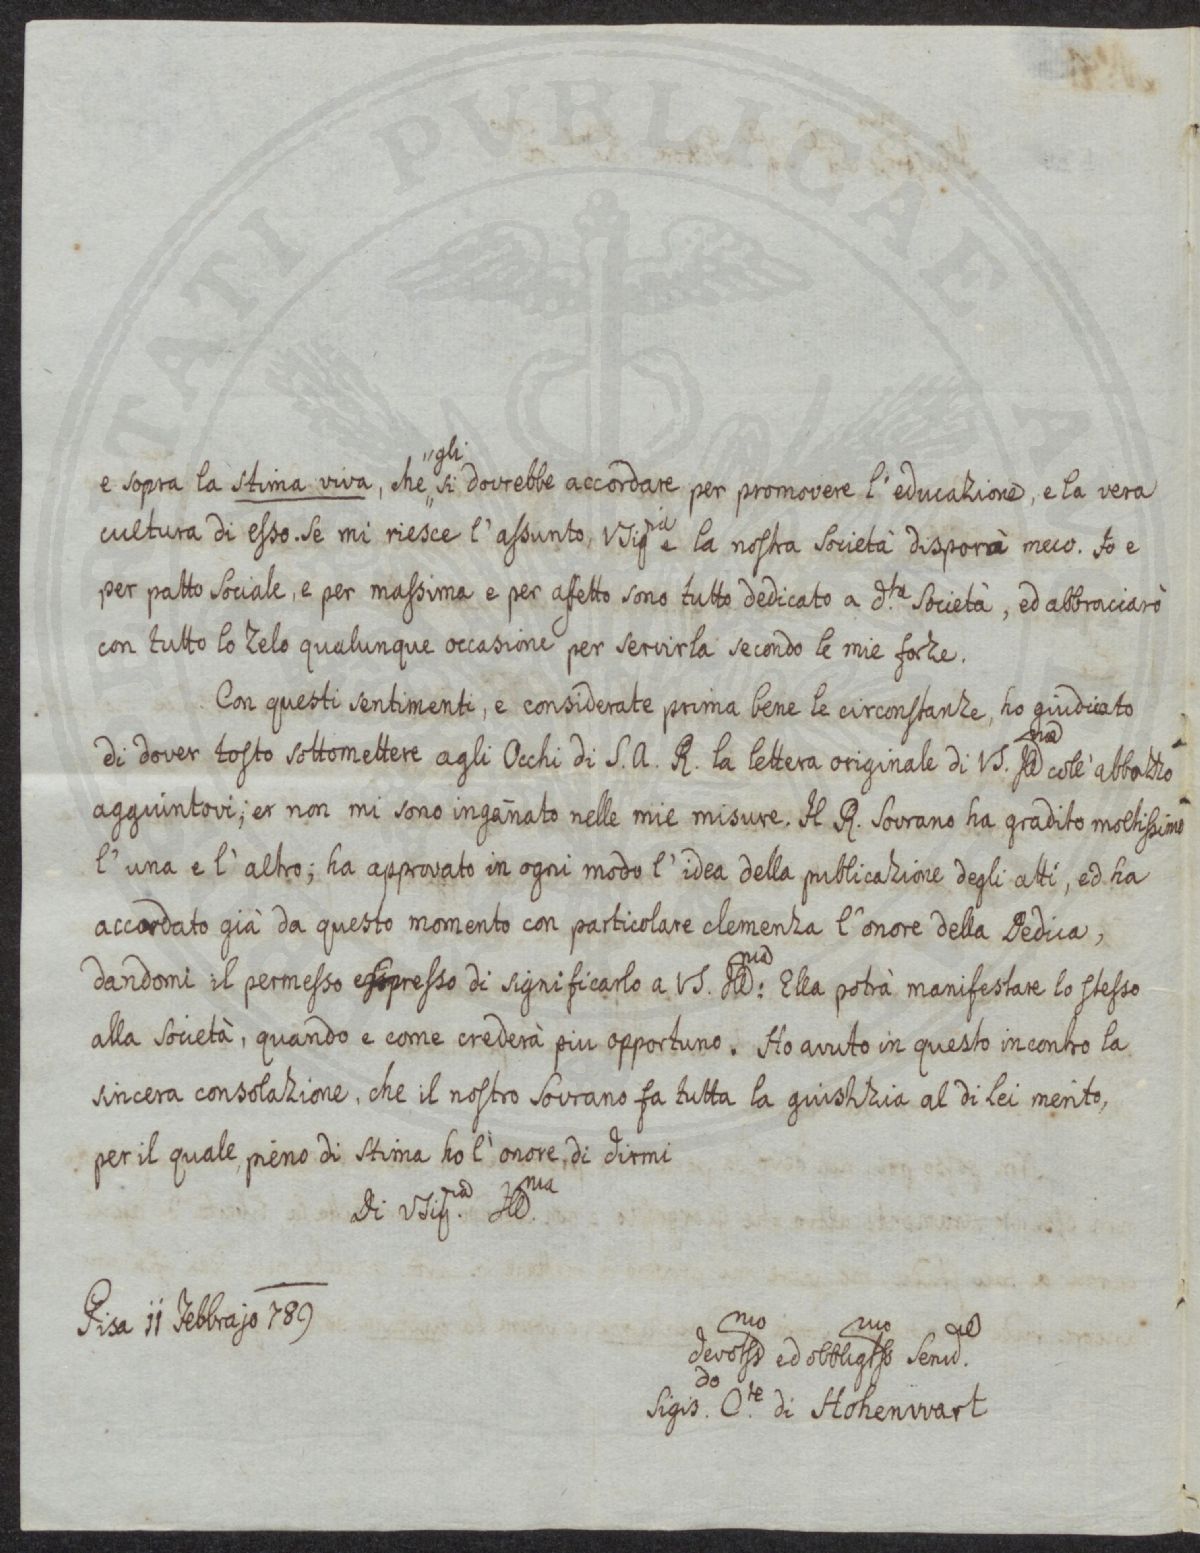 PVBLICAE
TATI
e sopra la stima viva, che gli si dovrebbe accordare per promovere l'educazione, e la vera
cultura di esso. Se mi riesce l'assunto, VSig.ria e la nostra Società disporrà meco. Io e
per patto Sociale, e per massima e per affetto sono tutto dedicato a d.tta Società, ed abbracciarò
con tutto lo Zelo qualunque occasione per servirla secondo le mie forze.
Con questi sentimenti, e considerate prima bene le circonstanze, ho giudicato
di dover tosto sottomettere agli Occhi di S. A. R. la lettera originale di VS. Ill.ma coll'abbozzo
agguintovi; et non mi sono ingañato nelle mie misure. Il R. Sovrano ha gradito moltissimo
l'una e l'altro; ha approvato in ogni modo l'idea della publicazione degli atti, ed ha
accordato già da questo momento con particolare clemenza l'onore della Dedica,
dandomi il permesso espresso di significarlo a VS. Ill.ma: Ella potrà manifestare lo stesso
alla Società, quando e come crederà piu opportuno. Ho avuto in questo incontro la
sincera consolazione, che il nostro Sovrano fa tutta la giustizia al di Lei merito,
per il quale, pieno di stima ho l'onore di dirmi
Di VSig.ria Ill.ma
Pisa 11 Febbrajo 789
devotss.mo ed obbligtss.mo Servid.re
Sigis.do C.te di Hohenwart